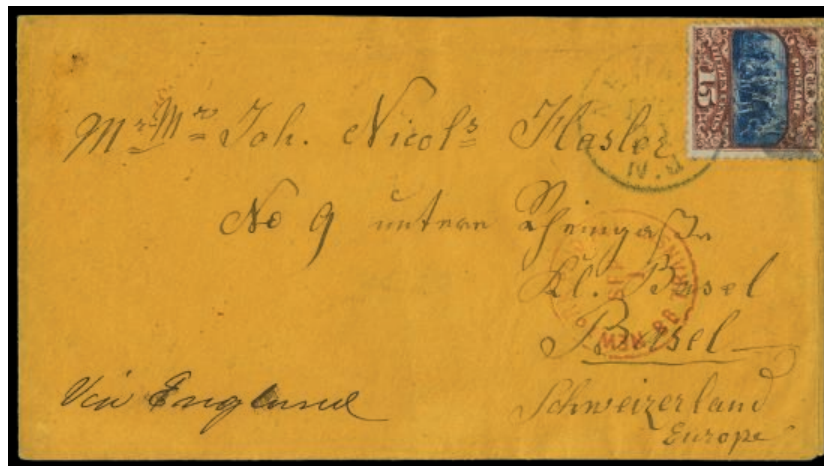 Mr Mr Joh. Nicols Hasler
No 9 untere Rheingasse
Kl. Basel
Basel
Schweizerland
Europe
Via England
15
POSTAGE
NEW
SEP